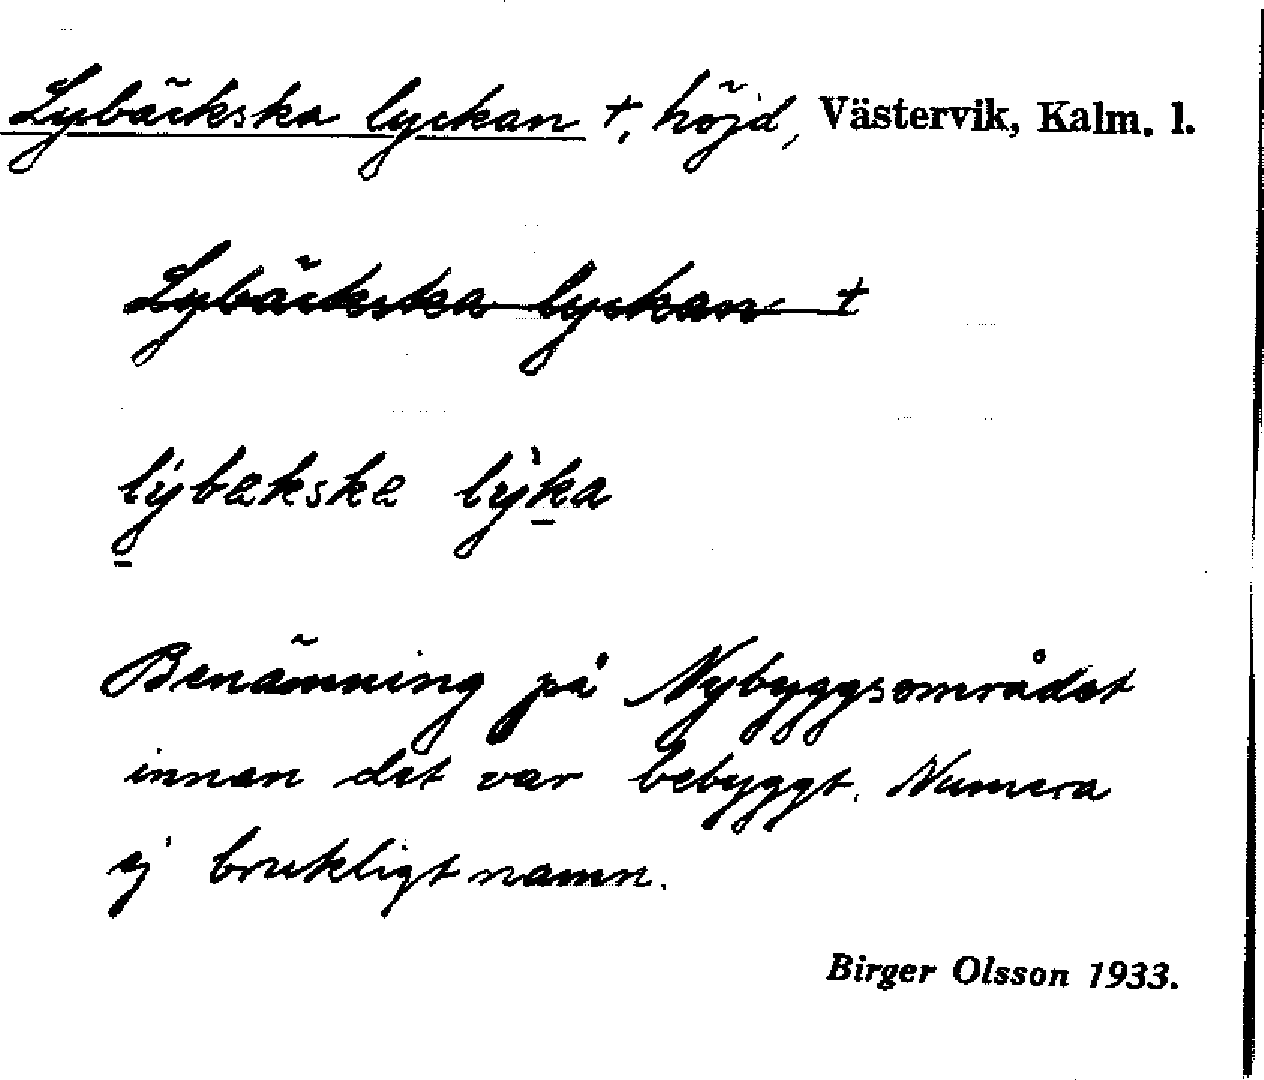 Lybäckska lyckan †, höjd, Västervik, Kalm. l.
Lybäckska lyckan †
lýbækskə lỳka
Benämning på Nybyggsområdet
innan det var bebyggt. Numera
ej brukligt namn.
Birger Olsson 1933.